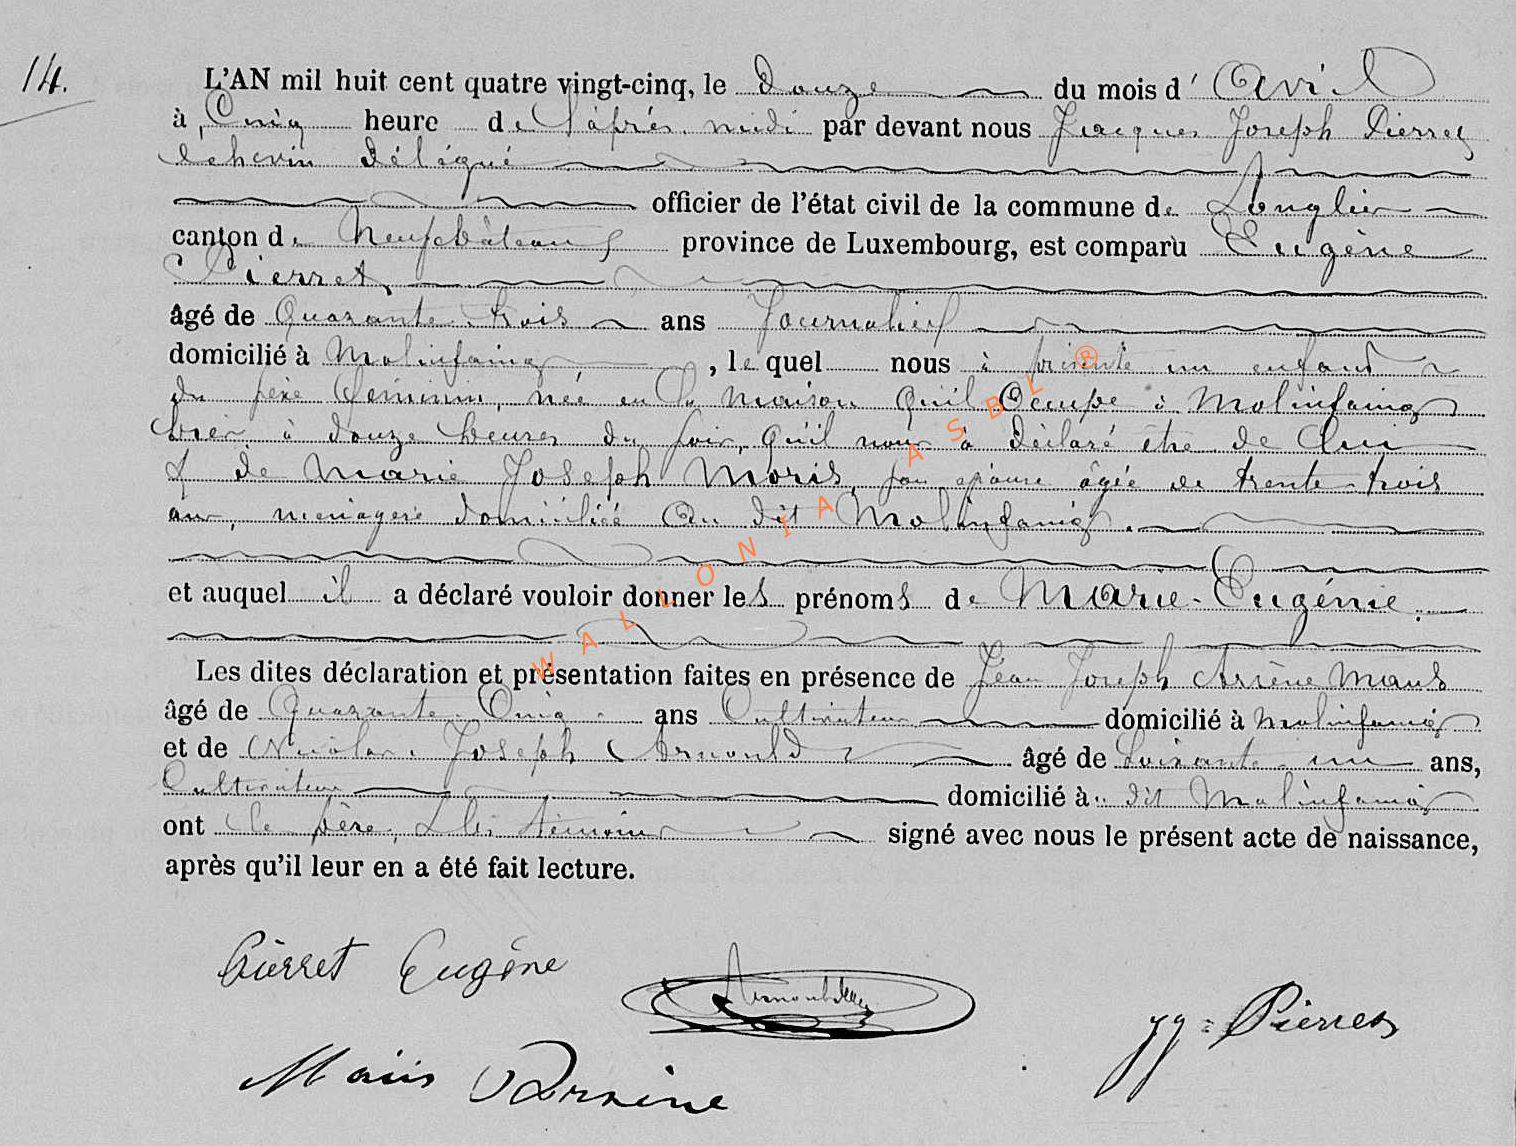 14.
L'AN mil huit cent quatre vingt-cinq, le douze du mois d' Avril
à Cinq heure de l'après midi par devant nous Jacques Joseph Pierret
Echevin délégué
officier de l'état civil de la commune de Longlier
canton de Neufchâteau province de Luxembourg, est comparu Eugène
Pierret,
âgé de Quarante trois ans Journalier
domicilié à Molinfaing, le quel nous à présenté un enfant
du sexe féminin, née en la maison qu'il Occupe à Molinfaing
hier, à douze heures du soir, qu'il nous à déclaré être de lui
& de Marie Joseph Moris, son épouse âgée de trente-trois
ans, ménagère domiciliée Au dit Molinfaing.
et auquel il a déclaré vouloir donner les prénoms de Marie-Eugénie.
Les dites déclaration et présentation faites en présence de Jean Joseph Arsène Maus
âgé de Quarante Cinq ans Cultivateur domicilié à Molinfaing
et de Nicolas Joseph Arnould âgé de Soixante un ans,
Cultivateur domicilié au dit Molinfaing
ont le père, & les témoins signé avec nous le présent acte de naissance,
après qu'il leur en a été fait lecture.
Pierret Eugène
Arnould
Arsène
Pierret
WALLONIA ASBL ®